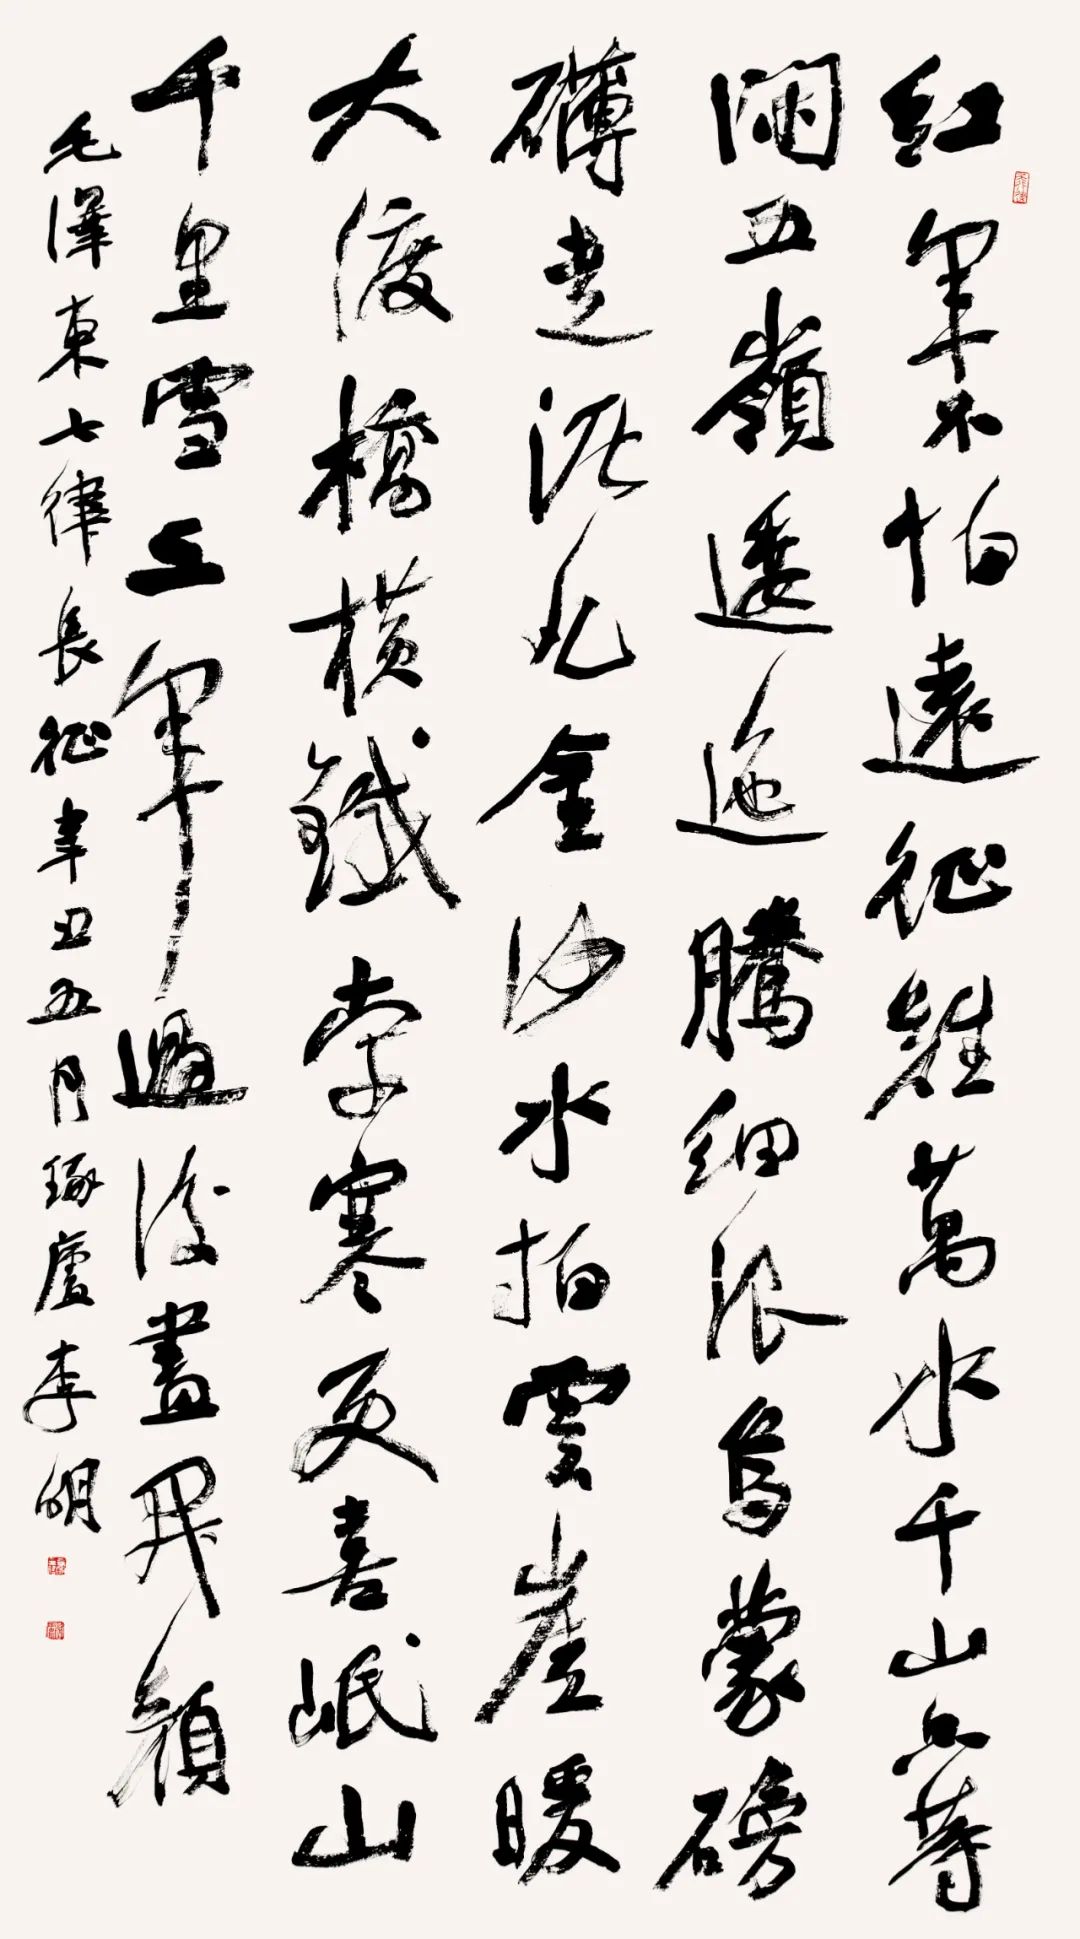 紅軍不怕遠征難萬水千山只等
閑五嶺逶迤騰細浪烏蒙磅
礴走泥丸金沙水拍雲崖暖
大渡橋橫鐵索寒更喜岷山
千里雪三軍過後盡開顏
毛澤東七律長征辛丑五月琢廬李明